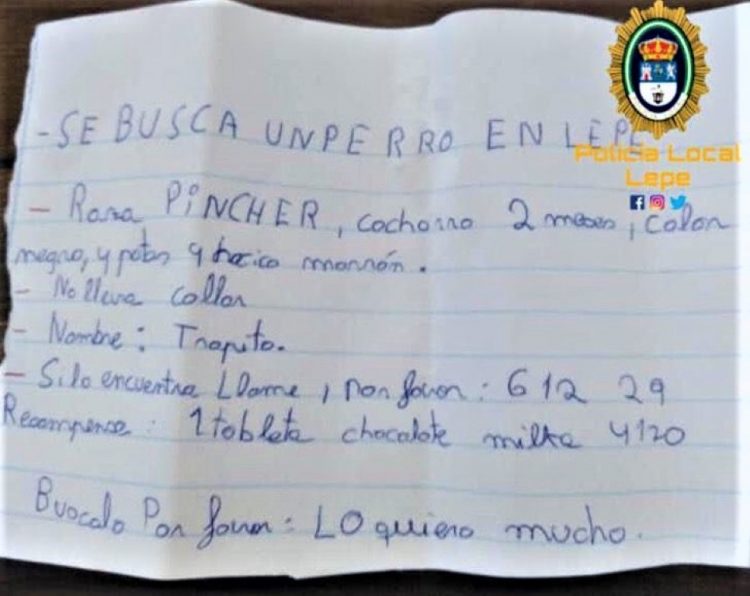 - SE BUSCA UN PERRO EN LEPE
Policía Local
Lepe
- Raza PiNCHER, cachorro 2 meses, color
negro, y patas y hocico marrón.
- No lleva collar
- Nombre: Trapito.
- Si lo encuentra Llame, por favor: 612 29
Recompensa: 1 tableta chocolate milka 4120
Buscalo Por favor: LO quiero mucho.